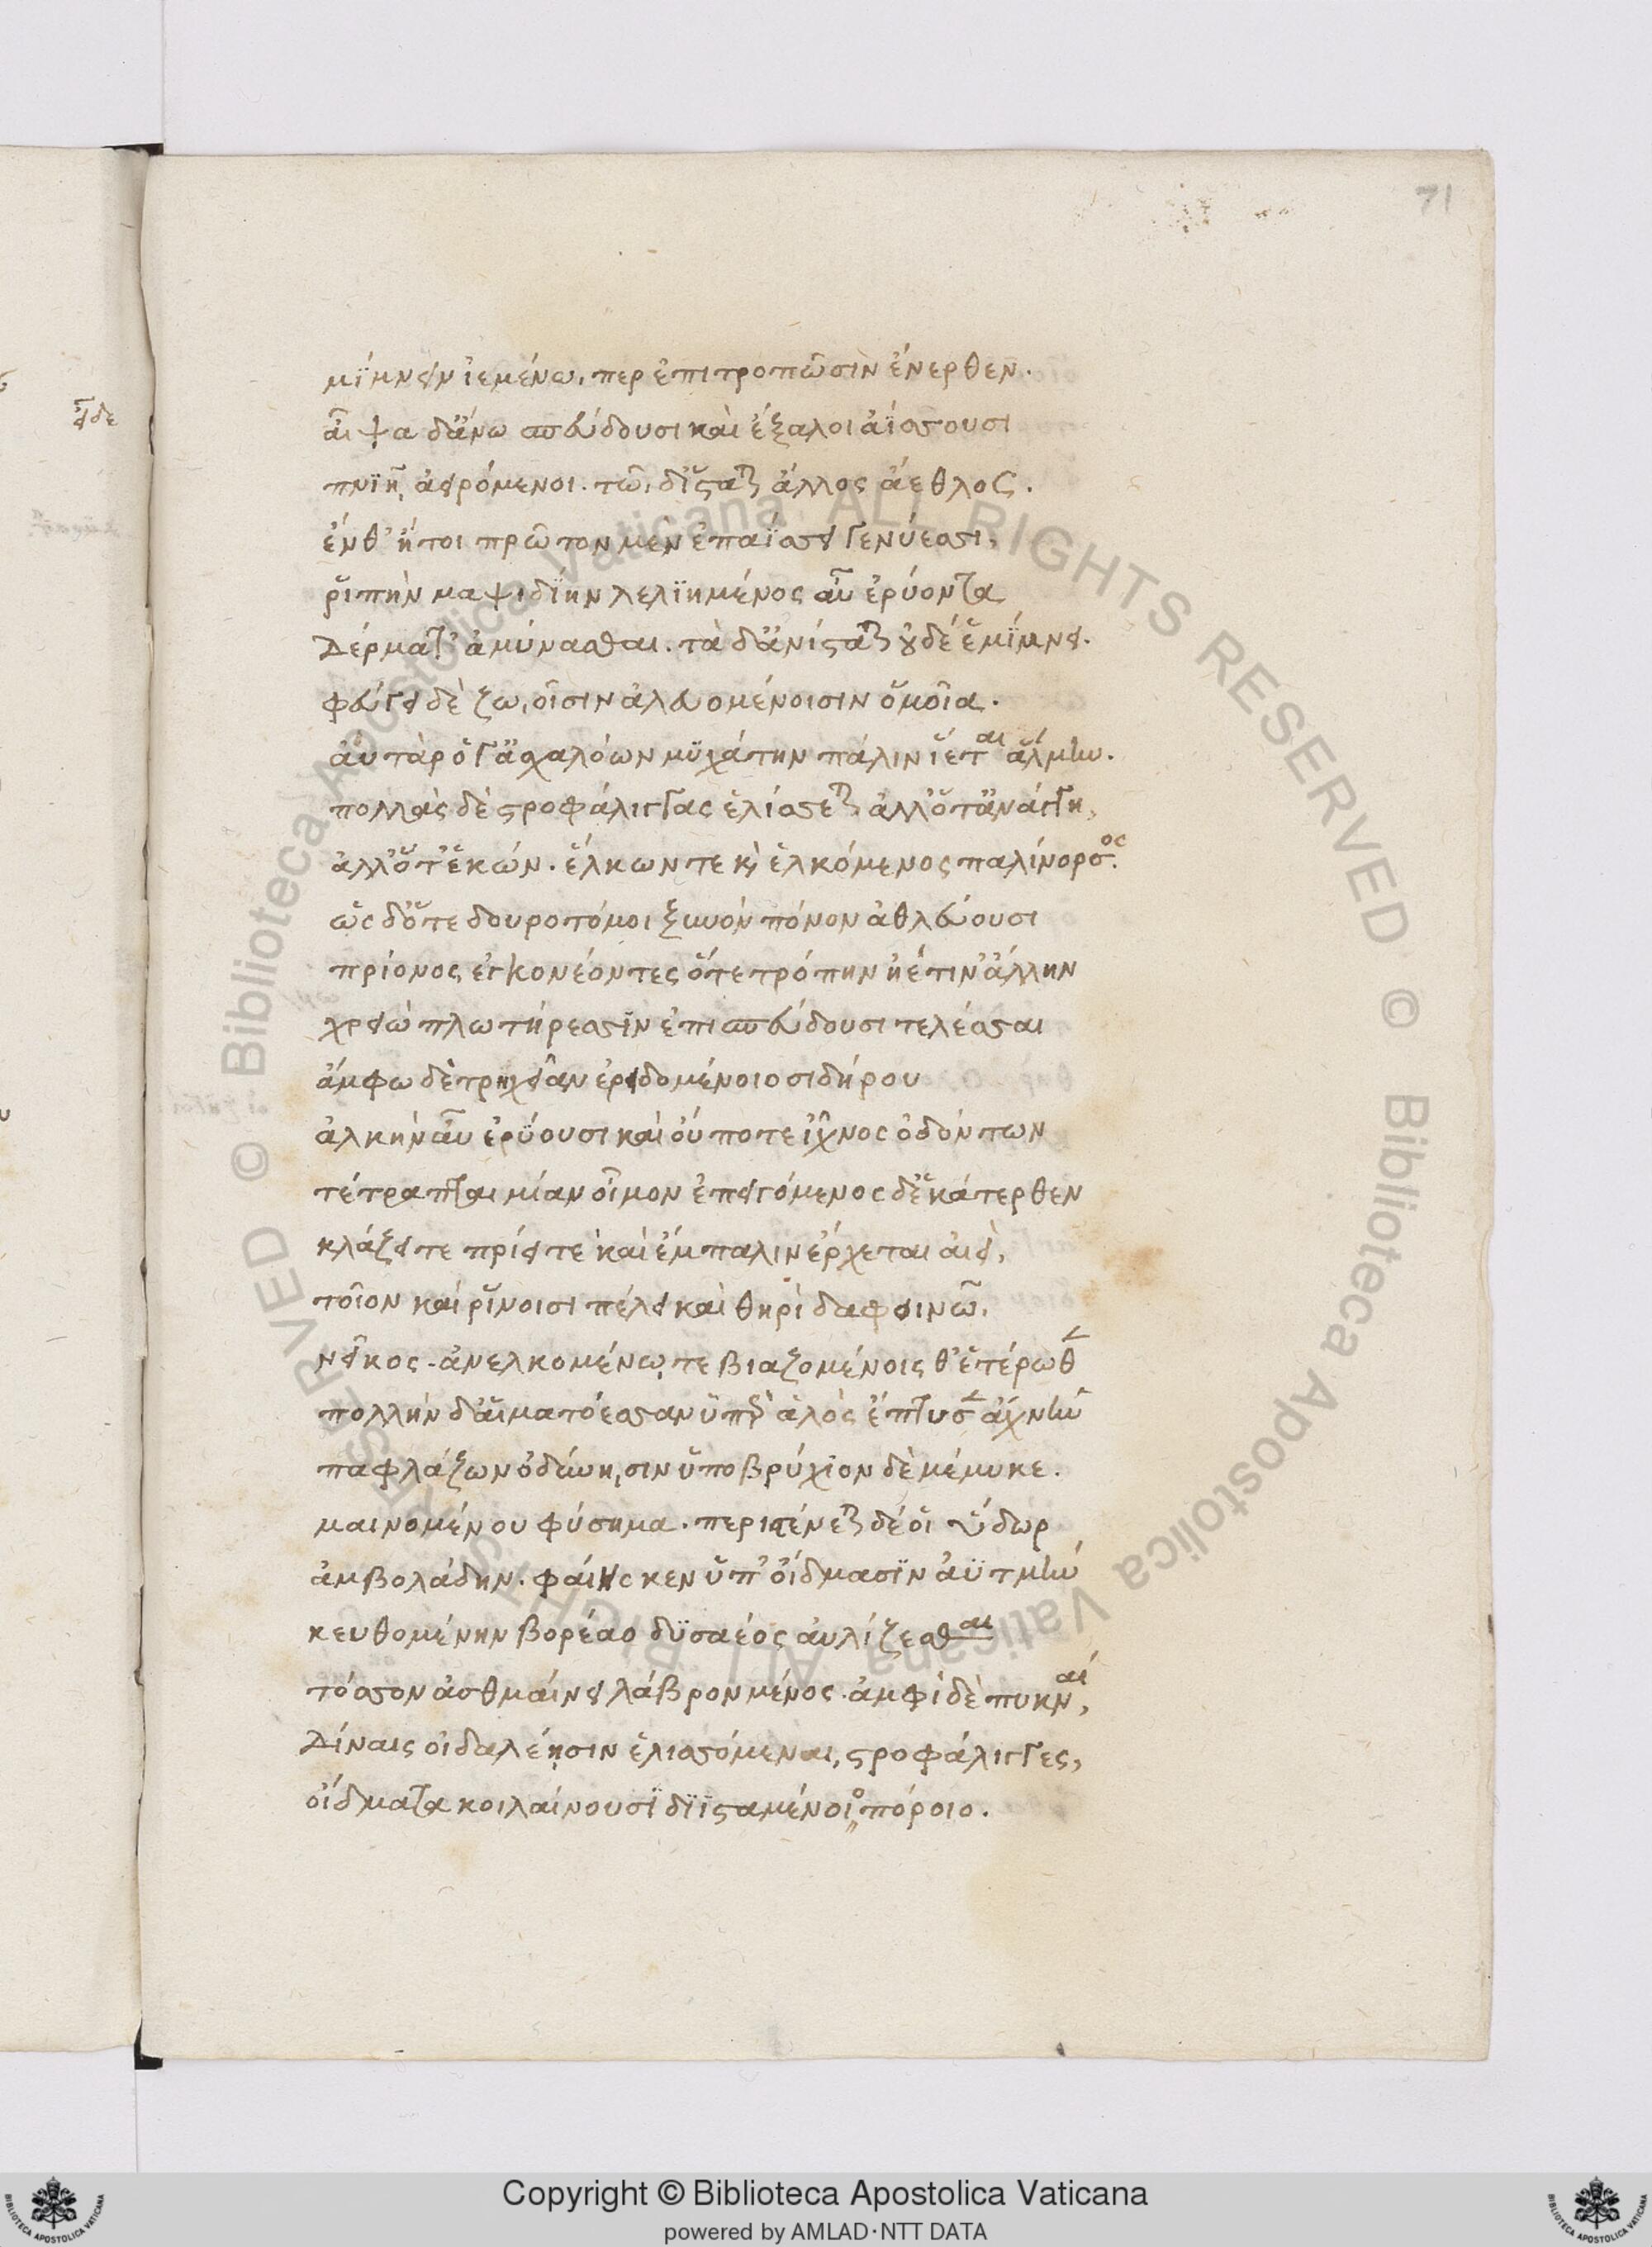 71
μίμνειν ἱεμένῳ περ ἐπιτροπῶσιν ἔνερθεν.
αἶψα δ' ἄνω σπεύδουσι καὶ ἔξαλοι ἀΐσσουσι
πνιῇ ἀειρόμενοι. τῷ δ' ἵσταται ἄλλος ἄεθλος.
ἔνθ' ἤτοι πρῶτον μὲν ἐπαΐσσει γενύεσσι,
ῥιπὴν μαψιδίην λελιημένος αὖ ἐρύοντα
Δέρματ' ἀμύνασθαι. τὰ δ' ἀνίσταται οὐδέ ἑ μίμνει.
φεύγει δὲ ζωοῖσιν ἀλευομένοισιν ὁμοῖα.
αὐτὰρ ὅγ' ἀσχαλόων μυχάτην πάλιν ἵεται ἅλμην.
πολλὰς δὲ στροφάλιγγας ἑλίσσεται ἄλλοτ' ἀνάγκῃ,
ἄλλοτ' ἑκών. ἕλκων τε καὶ ἑλκόμενος παλίνορσος.
ὡς δ' ὅτε δουροτόμοι ξυνὸν πόνον ἀθλεύουσι
πρίονος ἐγκονέοντες ὅτε τρόπην ἠέ τιν' ἄλλην
χρειὼ πλωτήρεσσιν ἐπισπεύδουσι τελέσσαι
ἄμφω δὲ τρηχεῖαν ἐρειδομένοιο σιδήρου
ἀλκὴν αὖ ἐρύουσι καὶ οὔποτε ἴχνος ὀδόντων
τέτραπται μίαν οἶμον ἐπειγόμενος δ' ἑκάτερθεν
κλάζει τε πρίει τε καὶ ἔμπαλιν ἔρχεται αἰεὶ,
τοῖον καὶ ῥινοῖσι πέλει καὶ θηρὶ δαφοινῷ.
νεῖκος ἀνελκομένῳ τε βιαζομένοις θ' ἑτέρωθεν
πολλὴν δ' αἱματόεσσαν ὑπεὶρ ἁλὸς ἔπτυσεν ἄχνην
παφλάζων ὀδύνῃσιν ὑποβρύχιον δὲ μέμυκε.
μαινομένου φύσημα. περιστένεται δέ οἱ ὕδωρ
ἀμβολάδην. φαίης κεν ὑπ' οἴδμασιν ἀϋτμὴν
κευθομένην βορέαο δυσαέος αὐλίζεσθαι
τόσσον ἀσθμαίνει λάβρον μένος. ἀμφὶ δὲ πυκναί,
Δίναις οἰδαλέῃσιν ἑλισσόμεναι, στροφάλιγγες,
οἴδματα κοιλαίνουσι διϊσταμένοιο πόροιο.